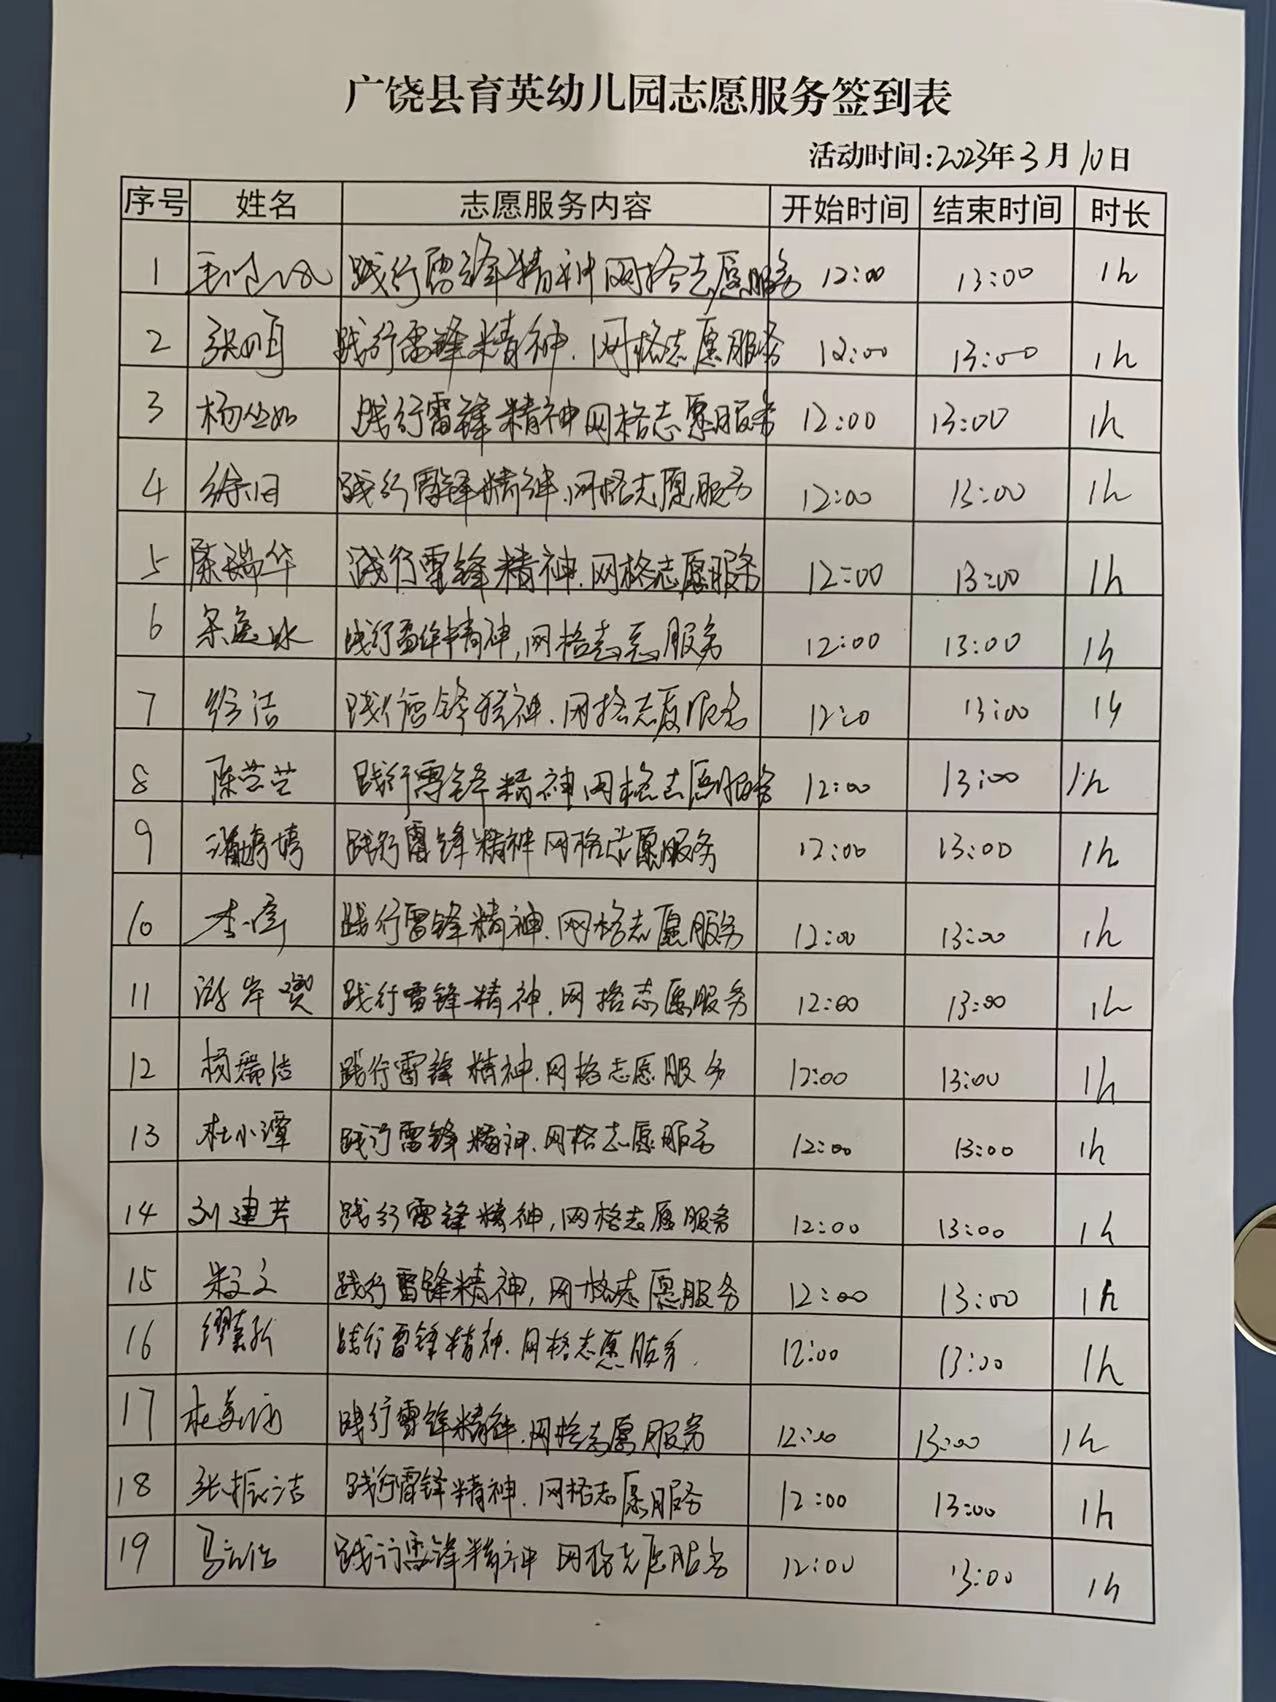 广饶县育英幼儿园志愿服务签到表
活动时间:2023年3月10日
序号 姓名 志愿服务内容 开始时间 结束时间 时长
1 践行雷锋精神网格志愿服务 12:00 13:00 1h
2 张明 践行雷锋精神.网格志愿服务 12:00 13:00 1h
3 践行雷锋精神网格志愿服务 12:00 13:00 1h
4 践行雷锋精神.网格志愿服务 12:00 13:00 1h
5 陈瑞华 践行雷锋精神.网格志愿服务 12:00 13:00 1h
6 践行雷锋精神,网格志愿服务 12:00 13:00 1h
7 徐洁 践行雷锋精神.网格志愿服务 12:00 13:00 1h
8 陈芸芸 践行雷锋精神网格志愿服务 12:00 13:00 1h
9 潘婷婷 践行雷锋精神网格志愿服务 12:00 13:00 1h
10 践行雷锋精神.网格志愿服务 12:00 13:00 1h
11 践行雷锋精神.网格志愿服务 12:00 13:00 1h
12 杨瑞洁 践行雷锋精神.网格志愿服务 12:00 13:00 1h
13 杜小潭 践行雷锋精神.网格志愿服务 12:00 13:00 1h
14 刘建芹 践行雷锋精神,网格志愿服务 12:00 13:00 1h
15 践行雷锋精神,网格志愿服务 12:00 13:00 1h
16 践行雷锋精神.网格志愿服务. 12:00 13:00 1h
17 践行雷锋精神.网格志愿服务 12:00 13:00 1h
18 张振洁 践行雷锋精神.网格志愿服务 12:00 13:00 1h
19 践行雷锋精神 网格志愿服务 12:00 13:00 1h